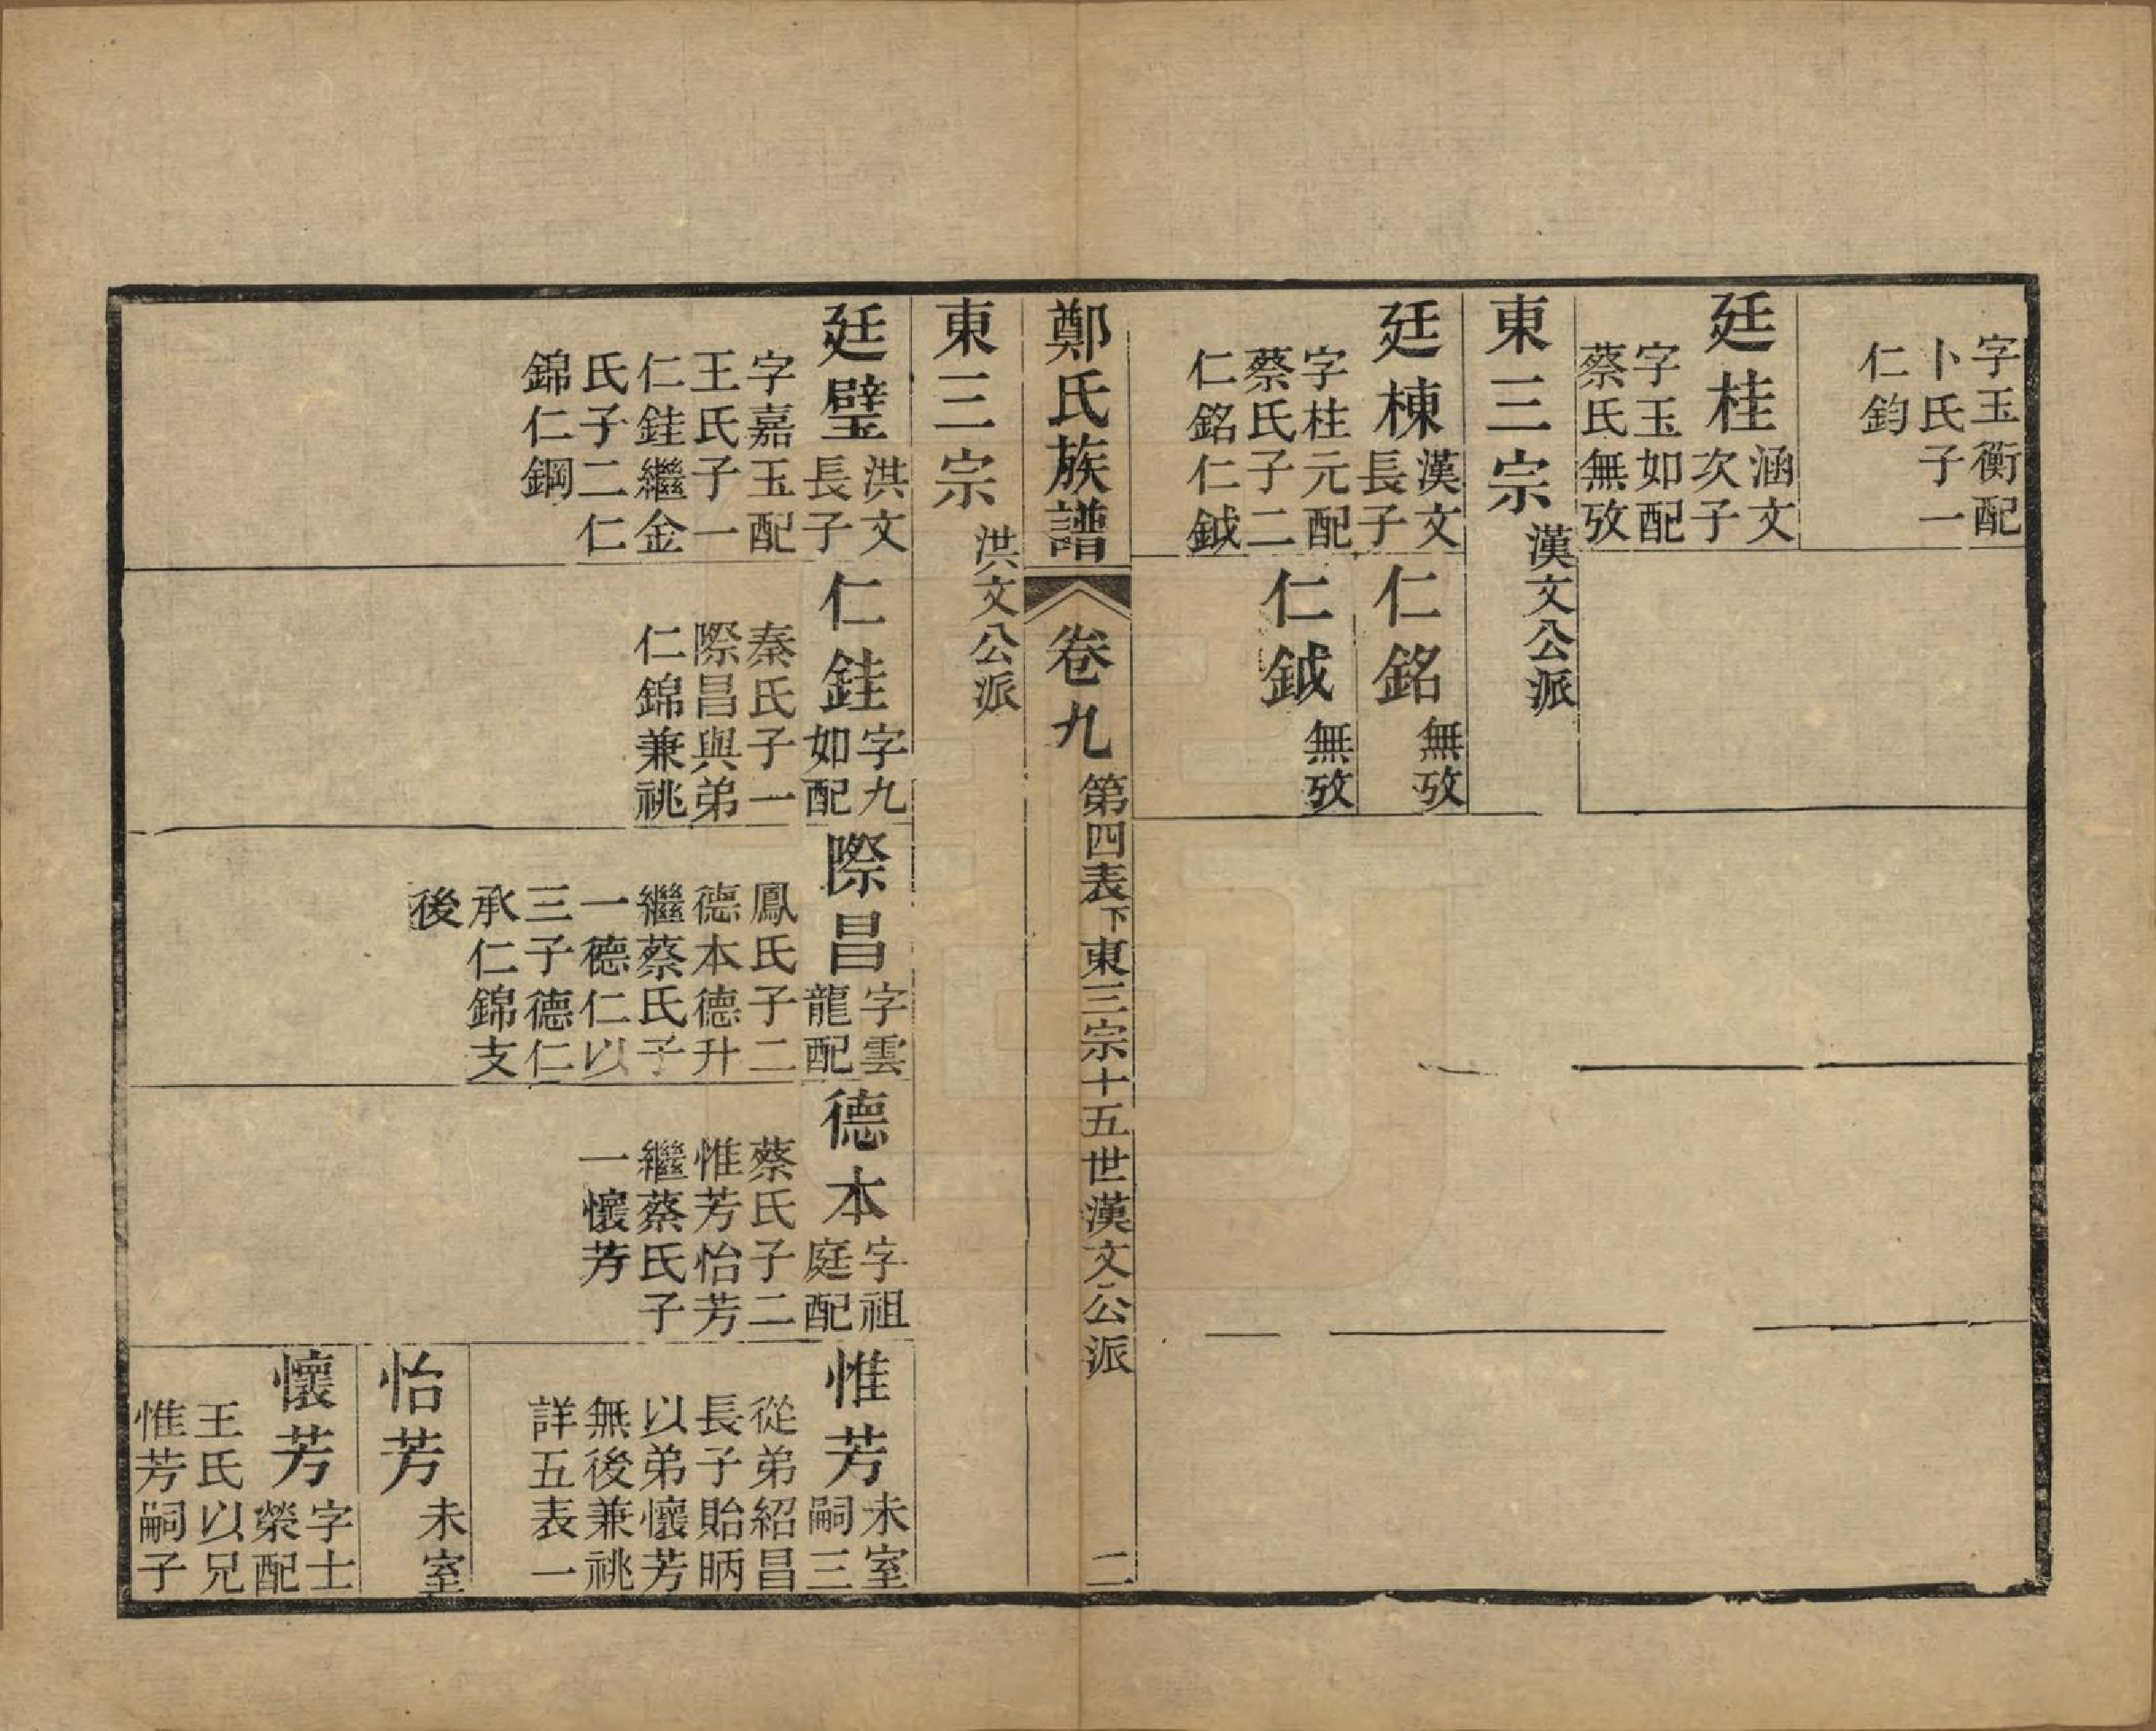 字玉衡配
卜氏子一
仁鈞
廷桂
涵文
次子
字玉如配
蔡氏無攷
東三宗
漢文公派
廷棟
漢文
長子
字柱元配
蔡氏子二
仁銘仁鉞
仁銘
無攷
仁鉞
無攷
鄭氏族譜
卷九
第四表下東三宗十五世漢文公派
二
東三宗
洪文公派
廷璧
洪文
長子
字嘉玉配
王氏子一
仁銈繼金
氏子二仁
錦仁鋼
仁銈
字九
如配
秦氏子一
際昌與弟
仁錦兼祧
際昌
字雲
龍配
鳳氏子二
德本德升
繼蔡氏子
一德仁以
三子德仁
承仁錦支
後
德本
字祖
庭配
蔡氏子二
惟芳怡芳
繼蔡氏子
一懷芳
惟芳
未室
嗣三
從弟紹昌
長子貽昞
以弟懷芳
無後兼祧
詳五表一
怡芳
未室
懷芳
字士
榮配
王氏以兄
惟芳嗣子